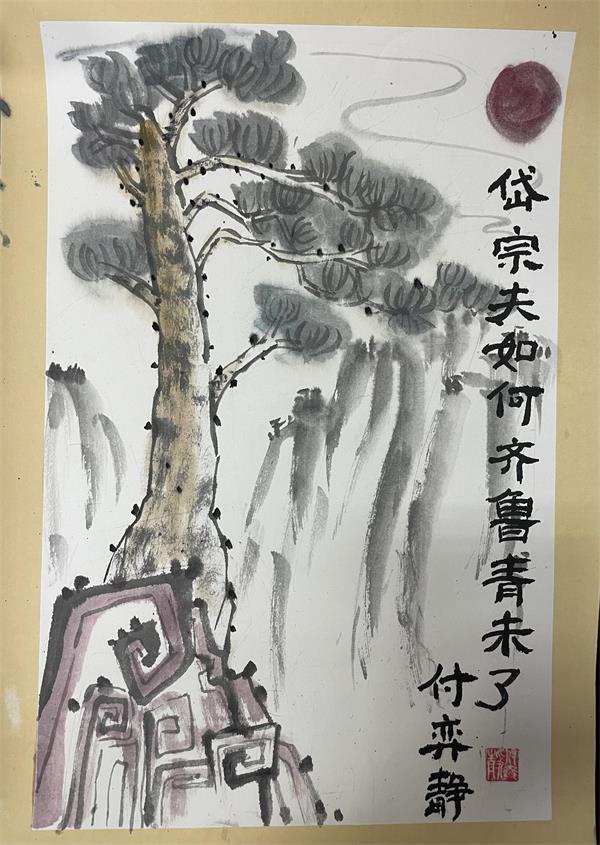 岱宗夫如何齐鲁青未了
付弈静